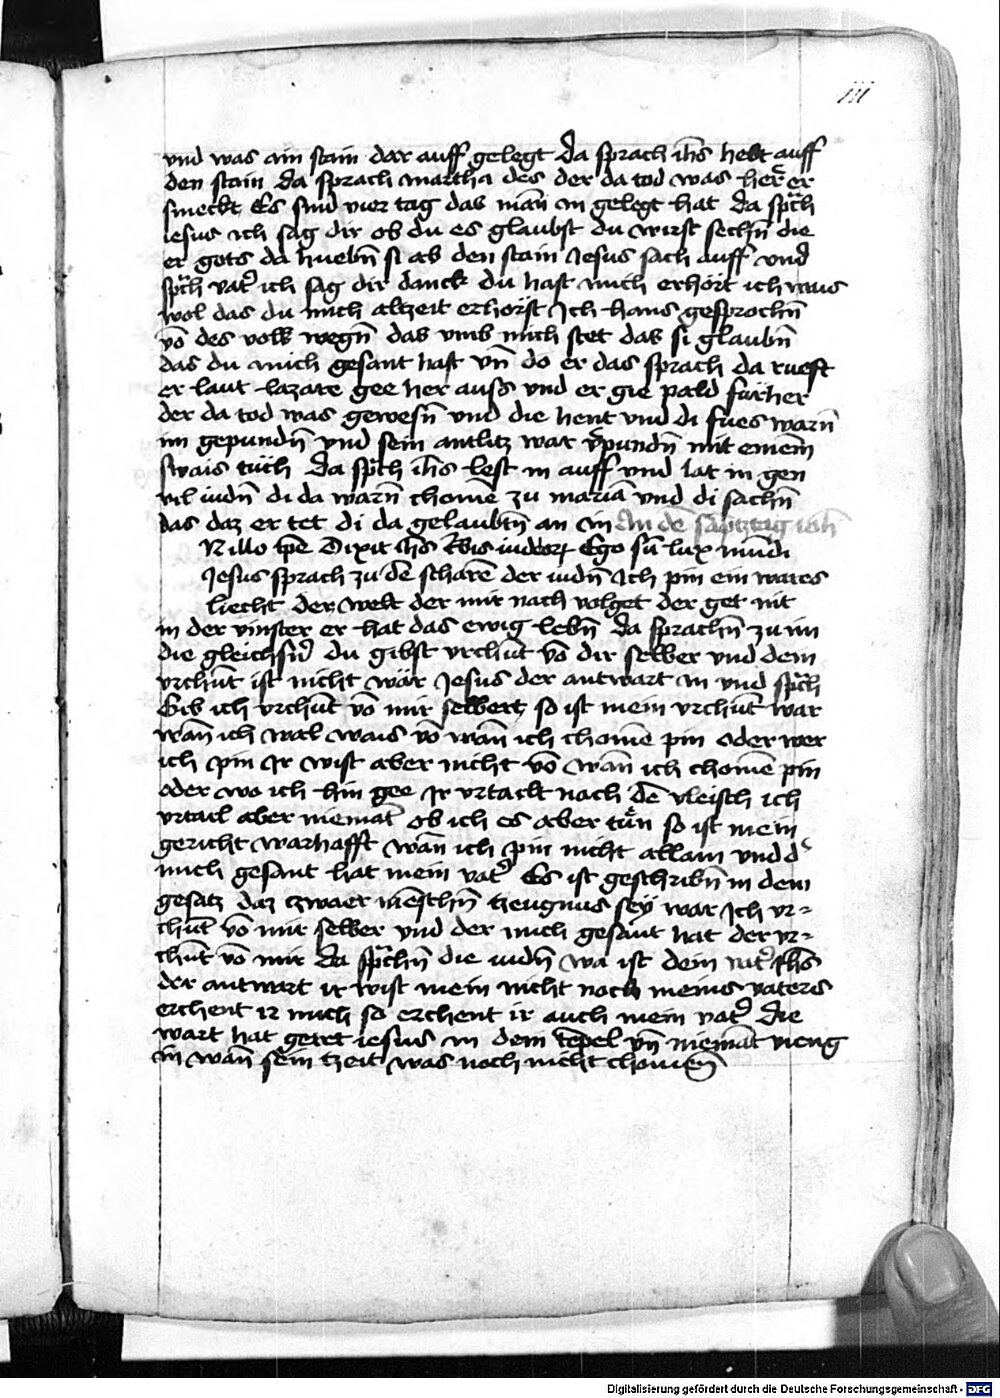 iii
vnd was ain stain dar auff gelegt da sprach ih̄s hebt auff
den stain da sprach martha des der da tod was her̄ er
smeckt Es sind vier tag das man̄ in gelegt hat da sp̄ch
iesus ich sag dir ob du es glaubst du wirst sechn̄ die
er gots da huebn̄ si ab den stain Jesus sach auff vnd
sp̄ch vat̓ ich sag dir danck du hast mich erhört ich wais
wol das du mich altzeit erhörst Ich hans gesprochn̄
vō des volk wegn̄ das vmb mich stet das si glaubn̄
das du mich gesant hast vn̄ do er das sprach da rueft
er laut lazare gee her auss vnd er gie pald fürher
der da tod was gewesn̄ vnd die hent vnd di fues warn̄
im gepundn̄ vnd sein antlitz war v̓pundn̄ mit einem
swais tüch da sp̄ch ih̄s lest in auff vnd lat in gen
vil iudn̄ di da warn̄ chomē zu mariā vnd di sachn̄
das daz er tet di da gelaubtn̄ an in An dē samtztag ioh̄
N illo tp̄e Dixit ih̄s t̄bis iudeorꝝ Ego sū lux mūdi
Jesus sprach zu dē scharē der iudn̄ Ich pin ein wares
liecht der welt der mir nach volget der get nit
in der vinster er hat das ewig lebn̄ da sprachn̄ zu im
die gleichsn̓ du gibst vrchūt vō dir selber vnd dein
vrchūt ist nicht wär Jesus der antwart in vnd sp̄ch
Gib ich vrchūt vō mir selbert so ist mein vrchūt war
wan̄ ich wal wais vō wan̄ ich chomē pin oder wer
ich pin Ir wist aber nicht vō wan̄ ich chomē pin
oder wo ich hin gee Ir vrtailt nach dē vleisch ich
vrtail aber niemāt ob ich es aber tün so ist mein
gericht warhafft wan̄ ich pin nicht allain vnd d̓
mich gesant hat mein vat̓ Es ist geschribn̄ in dem
gesatz daz tzwaer mēschn̄ tzeugnus sey war Ich vr=
chūt vō mir selber vnd der mich gesant hat der vr=
chūt vō mir da sp̄chn̄ die iudn̄ wa ist dein vat̓ ih̄s
der antwart ir wist mein nicht noch meins vaters
erchent ir mich so erchent ir auch mein vat̓ die
wart hat geret iesus in dem tēpel vn̄ niemāt vieng
in wan̄ sein tzeit was noch nicht chomen̄
Digitalisierung gefördert durch die Deutsche Forschungsgemeinschaft - DFG